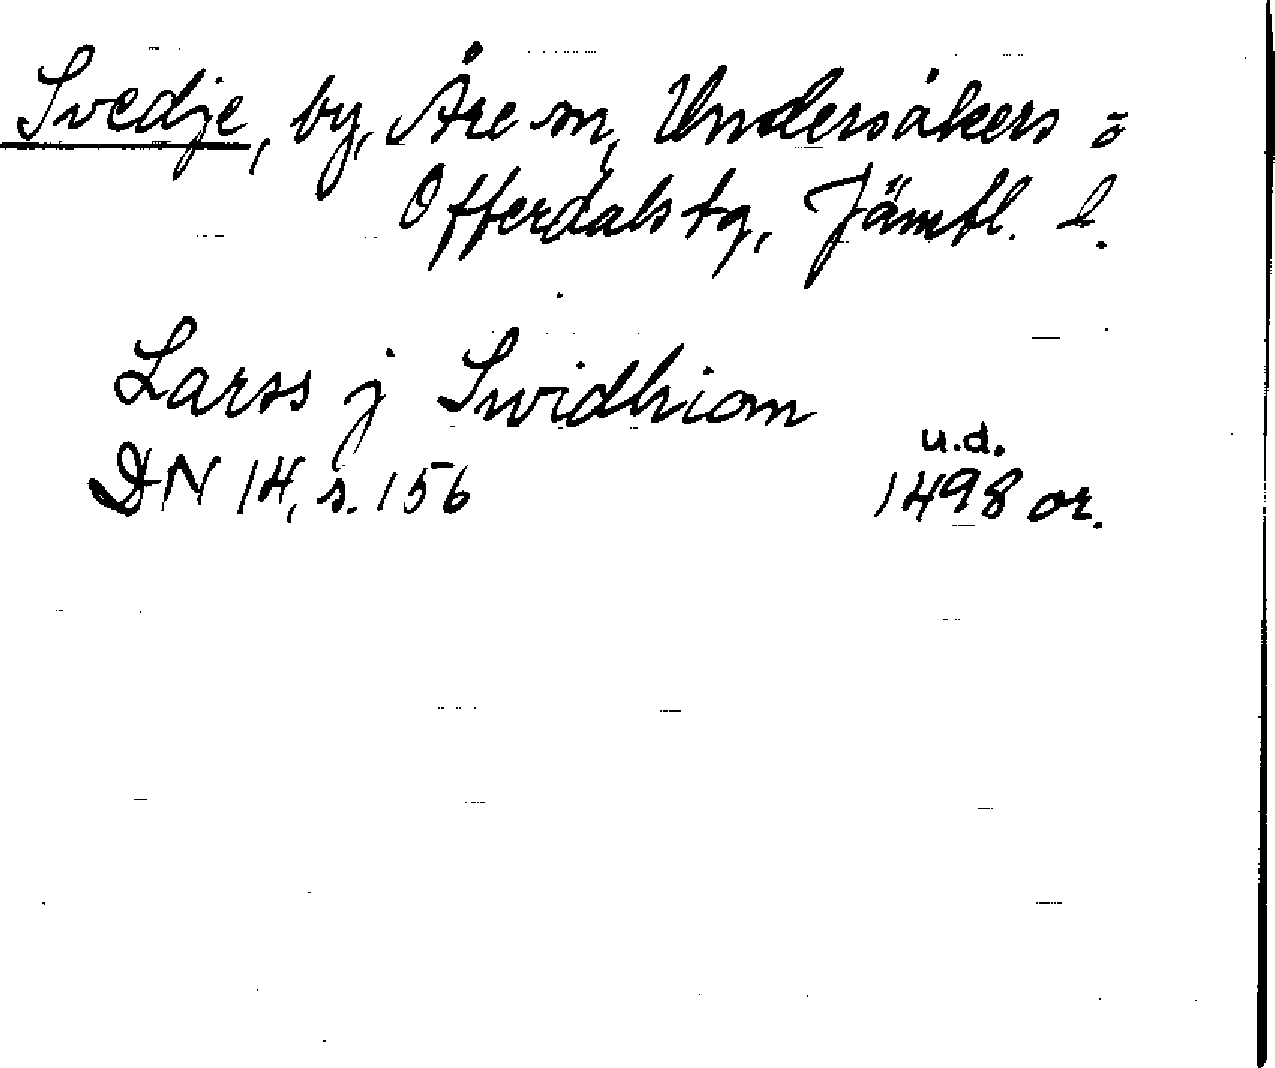 Svedje, by, Åre sn, Undersåkers o
Offerdals tg, Jämtl. l.
Larss j Swidhiom
u.d.
DN 14, s. 156 1498 or.